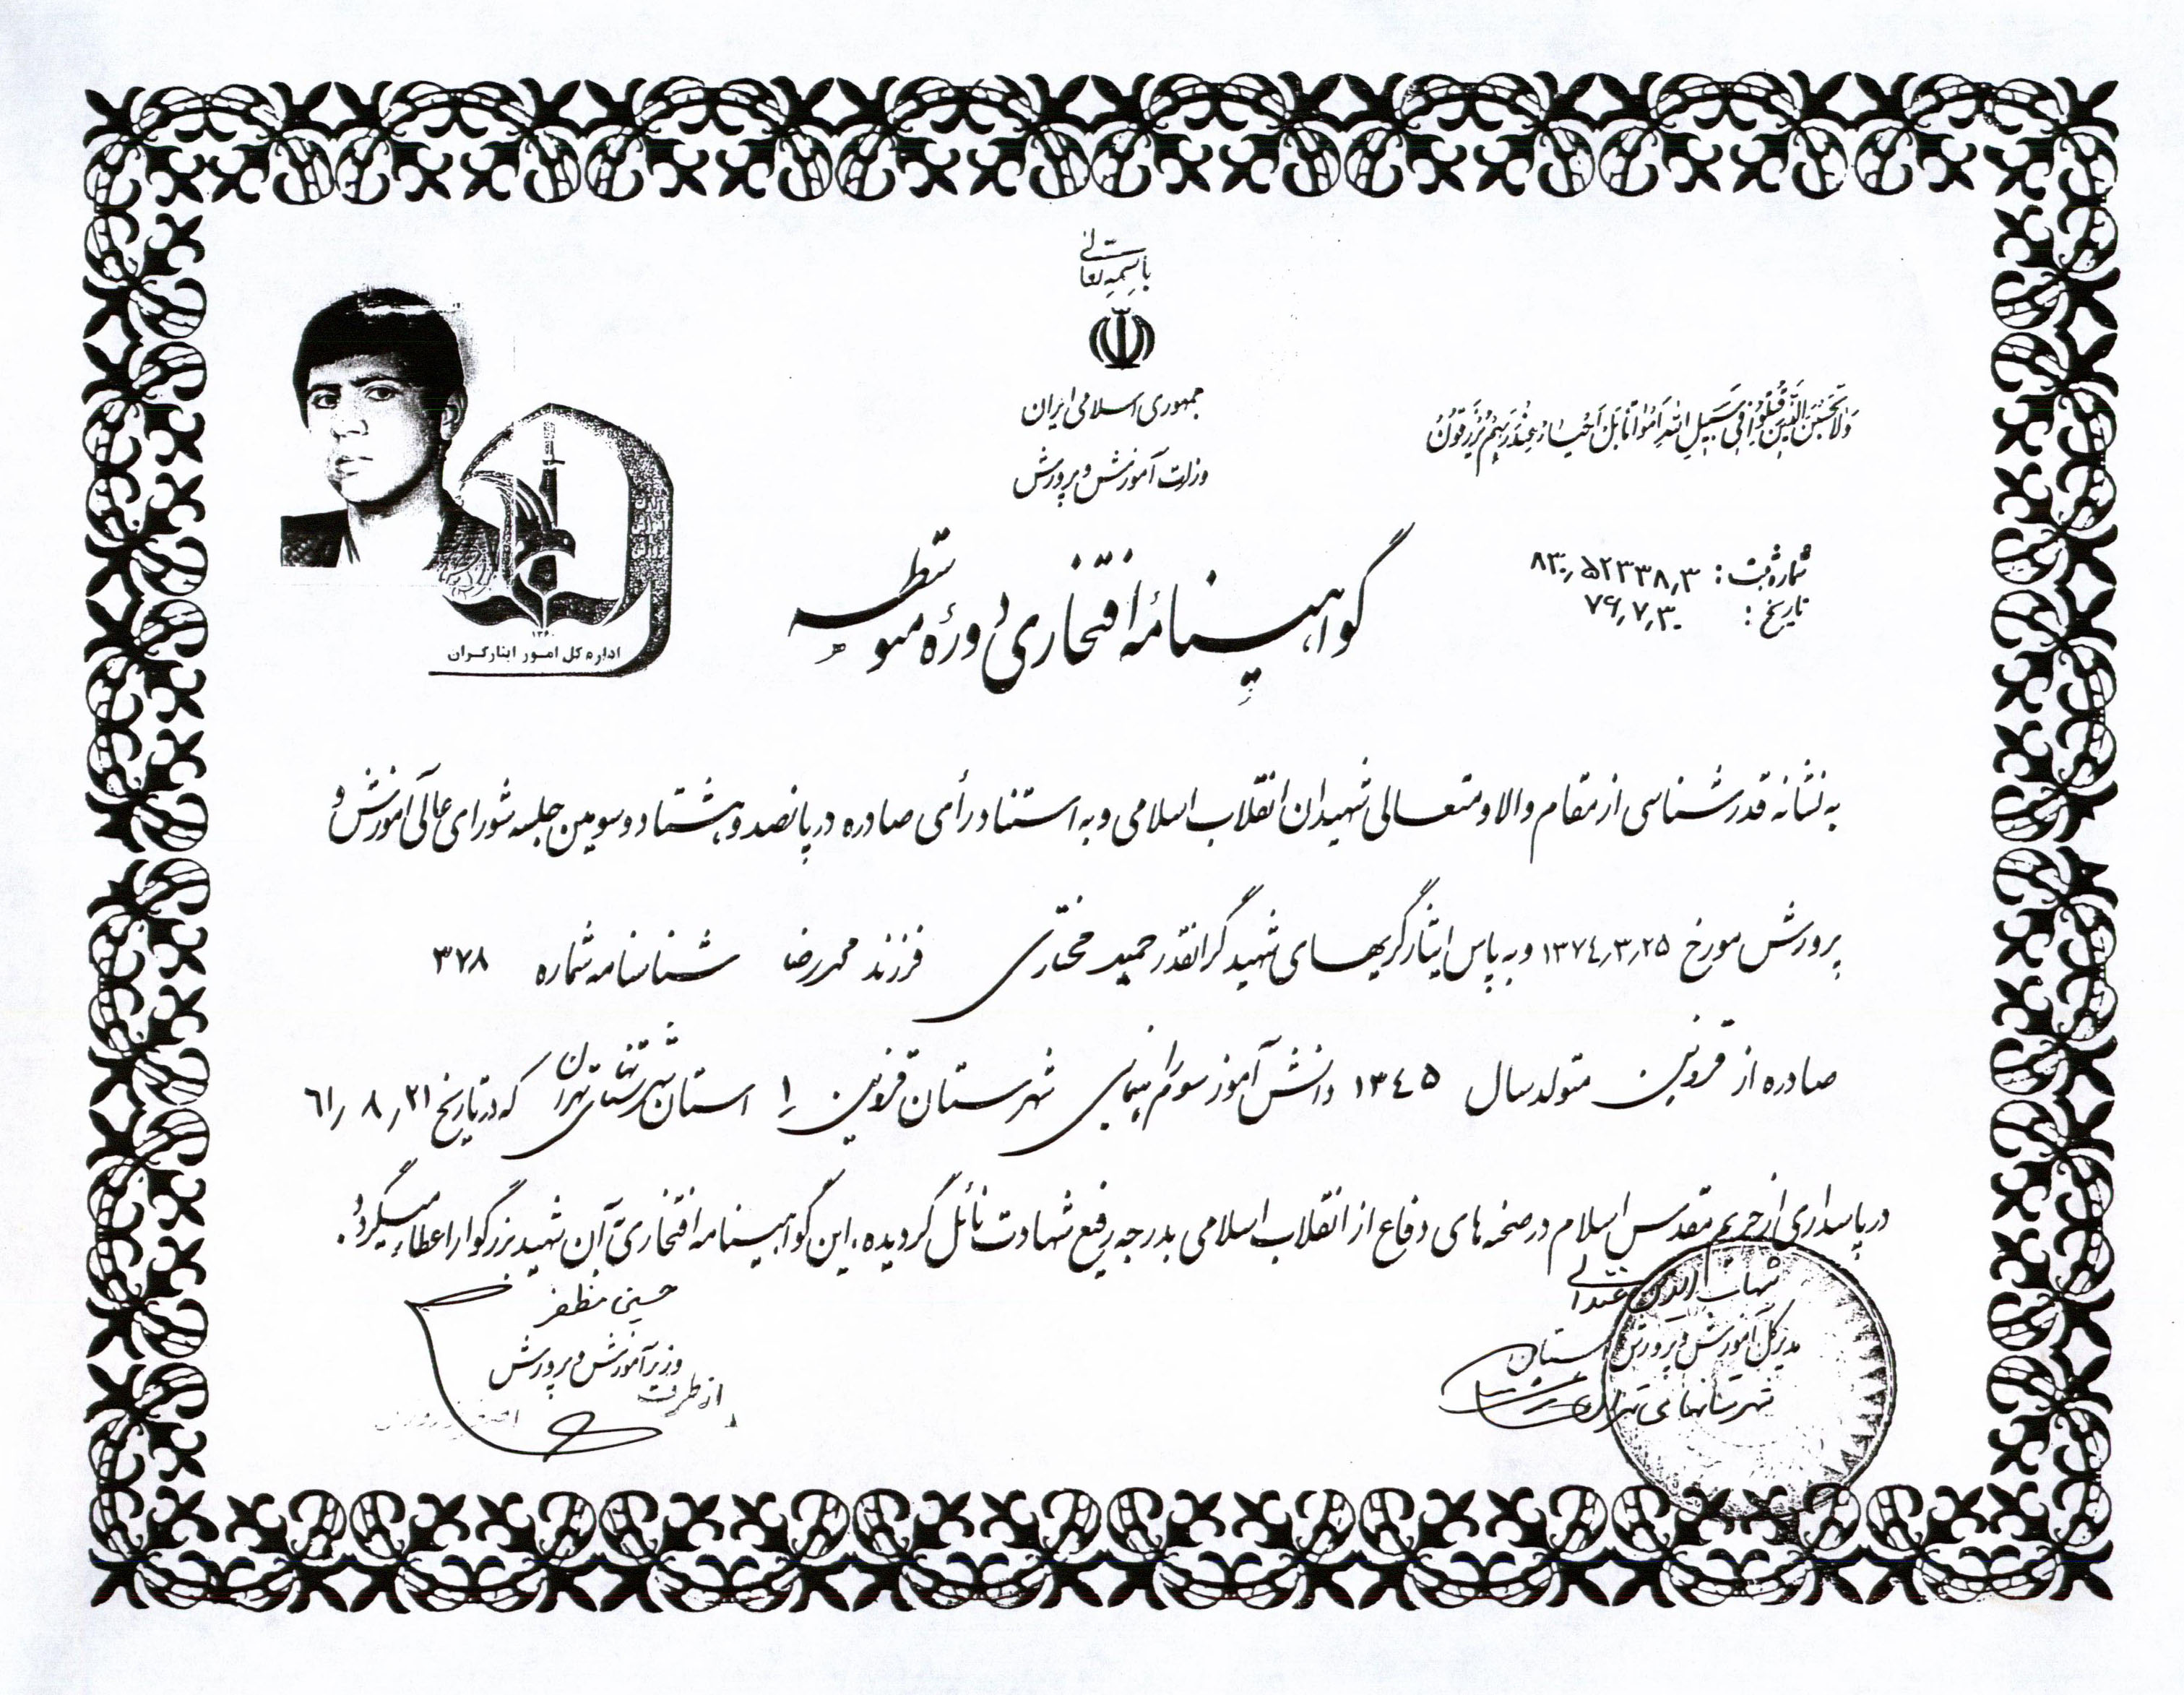 باسمه تعالی
جمهوری اسلامی ایران
وزارت آموزش و پرورش
وَلا تَحْسَبَنَّ الَّذینَ قُتِلُوا فی سَبیلِ اللهِ اَمْواتاً بَلْ اَحْیاءٌ عِنْدَ رَبِّهِمْ یُرْزَقُونَ
شماره ثبت: ۸۳۰٫۵۲۳۳۸٫۳
تاریخ: ۷۹٫۷٫۳۰
گواهینامه افتخاری دوره متوسطه
۱۳۶۰
اداره کل امور ایثارگران
به نشانه قدرشناسی از مقام والا و متعالی شهیدان انقلاب اسلامی و به استناد رأی صادره در پانصد و هشتاد و سومین جلسه شورای عالی آموزش و
پرورش مورخ ۱۳۷٤٫۳٫۲۵ و به پاس ایثارگریهای شهید گرانقدر حمید مختاری فرزند محمدرضا شناسنامه شماره ۳۷۸
صادره از قزوین متولد سال ۱۳٤۵ دانش آموز سوم راهنمایی شهرستان قزوین ۱ استان شهرستانهای تهران که در تاریخ ۶۱٫۸٫۲۱
در پاسداری از حریم مقدس اسلام در صحنه های دفاع از انقلاب اسلامی بدرجه رفیع شهادت نائل گردیده، این گواهینامه افتخاری به آن شهید بزرگوار اعطاء میگردد.
شهاب الدین عبدالی
مدیرکل آموزش و پرورش استان
شهرستانهای تهران
حسین مظفر
وزیر آموزش و پرورش
از طرف